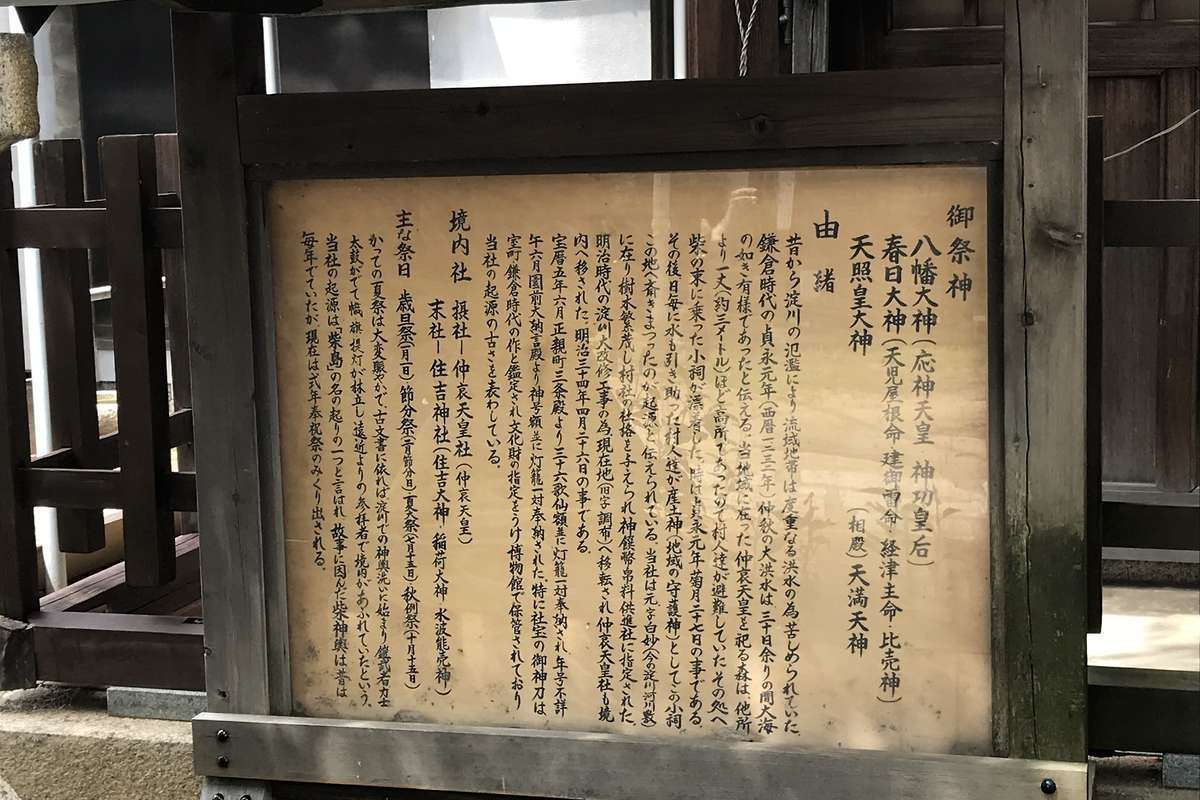 御祭神
八幡大神(応神天皇 神功皇后)
春日大神(天児屋根命・建御雷命・経津主命・比売神)
天照皇大神 (相殿)天満大神
由緒
昔から淀川の氾濫により流域地帯は度重なる洪水の為苦しめられていた
鎌倉時代の貞永元年(西暦一二三二年)仲秋の大洪水は二十日余りの間大海
の如き有様であったと伝える。当地域に在った仲哀天皇を祀る森は、他所
より一丈(約三メートル)ほど高所であったので村人達が避難していた。その処へ
柴の束に乗った小祠が漂着した。時は貞永元年菊月二十七日の事である。
その後日毎に水も引き助った村人達が産土神(地域の守護神)としてこの小祠
をこの地へ斎きまつったのが起源と伝えられている。当社は元字白妙(今の淀川河川敷)
に在り樹木繁茂し村社の社格を与えられ神饌幣帛料供進社に指定された。
明治時代の淀川大改修工事の為、現在地(旧字調布)へ移転され仲哀天皇社も境
内へ移された。明治三十四年四月二十六日の事である。
宝暦五年六月正親町三条殿より三十六歌仙額並に灯籠一対奉納され、年号不詳
午六月園前大納言殿より神号額並に灯籠一対奉納された。特に社宝の御神刀は、
室町鎌倉時代の作と鑑定され文化財の指定をうけ博物館で保管されており
当社の起源の古さを表わしている。
境内社 摂社―仲哀天皇社(仲哀天皇)
末社―住吉神社(住吉大神・稲荷大神・水波能売神)
主な祭日 歳旦祭(一月一日)節分祭(二月節分日)夏祭(七月十五日)秋例祭(十月十五日)
かっての夏祭は大変賑やかで、古文書に依れば淀川での神輿洗いに始まり鎧武者力士
太鼓がでて幟、旗、提灯が林立し遠近よりの参拝者で境内があふれていたという。
当社の起源は「柴島」の名の起りの一つと言はれ 故事に因んだ柴神輿は昔は
毎年でていたが、現在は式年奉祝祭のみくり出される。